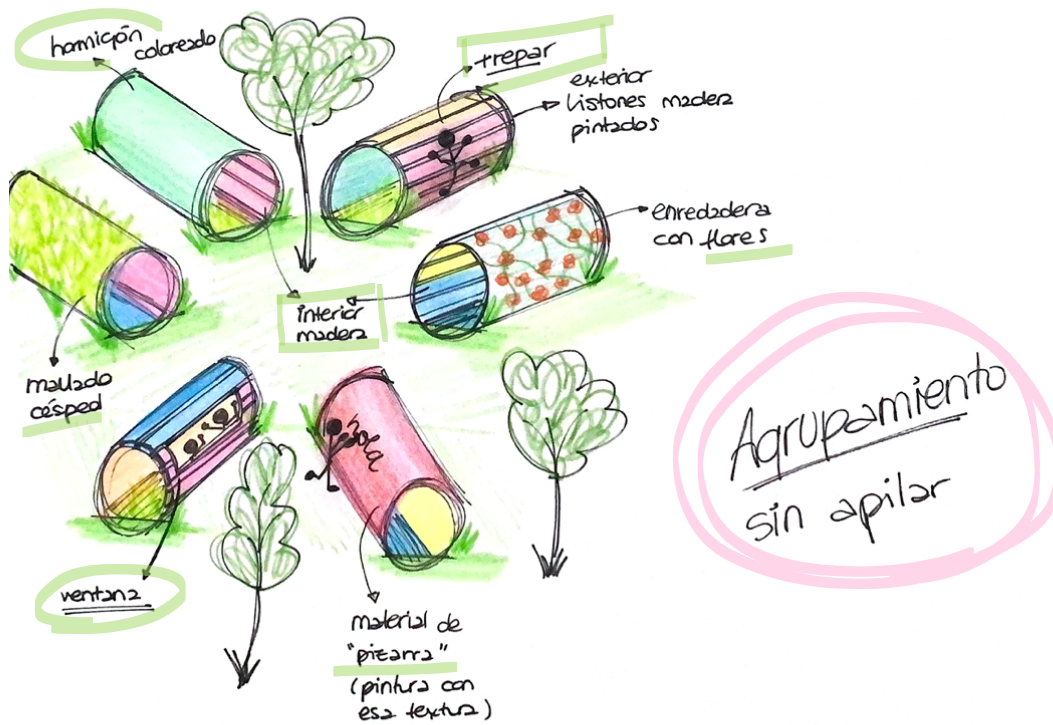 hormigón coloreado
trepar
exterior
listones madera
pintados
enredadera
con flores
interior
madera
mallado
césped
hola
ventana
material de
"pizarra"
(pintura con
esa textura)
Agrupamiento
sin apilar